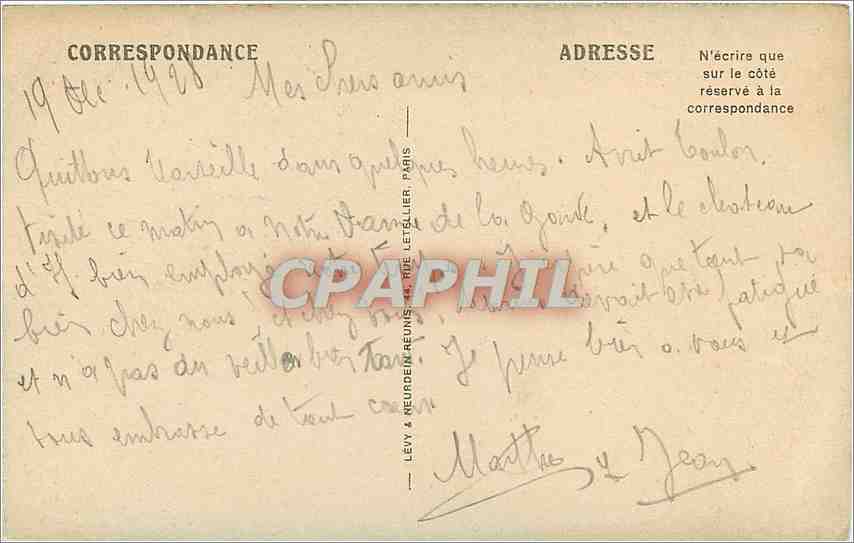 CORRESPONDANCE
ADRESSE
N'écrire que
sur le côté
réservé à la
correspondance
19 Dec. 1928 Mes chers amis
Quittons Marseille dans quelques heures. Toulon.
Visité ce matin à Notre Dame de la Garde, et le chateau
d'If bien employé notre que tout va
bien chez nous et chez vous, fatigué
et n'a pas du veiller bien tard. Je pense bien a vous et
vous embrasse de tout coeur
Marthe & Jean
LÉVY & NEURDEIN RÉUNIS, 44, RUE LETELLIER, PARIS
CPAPHIL